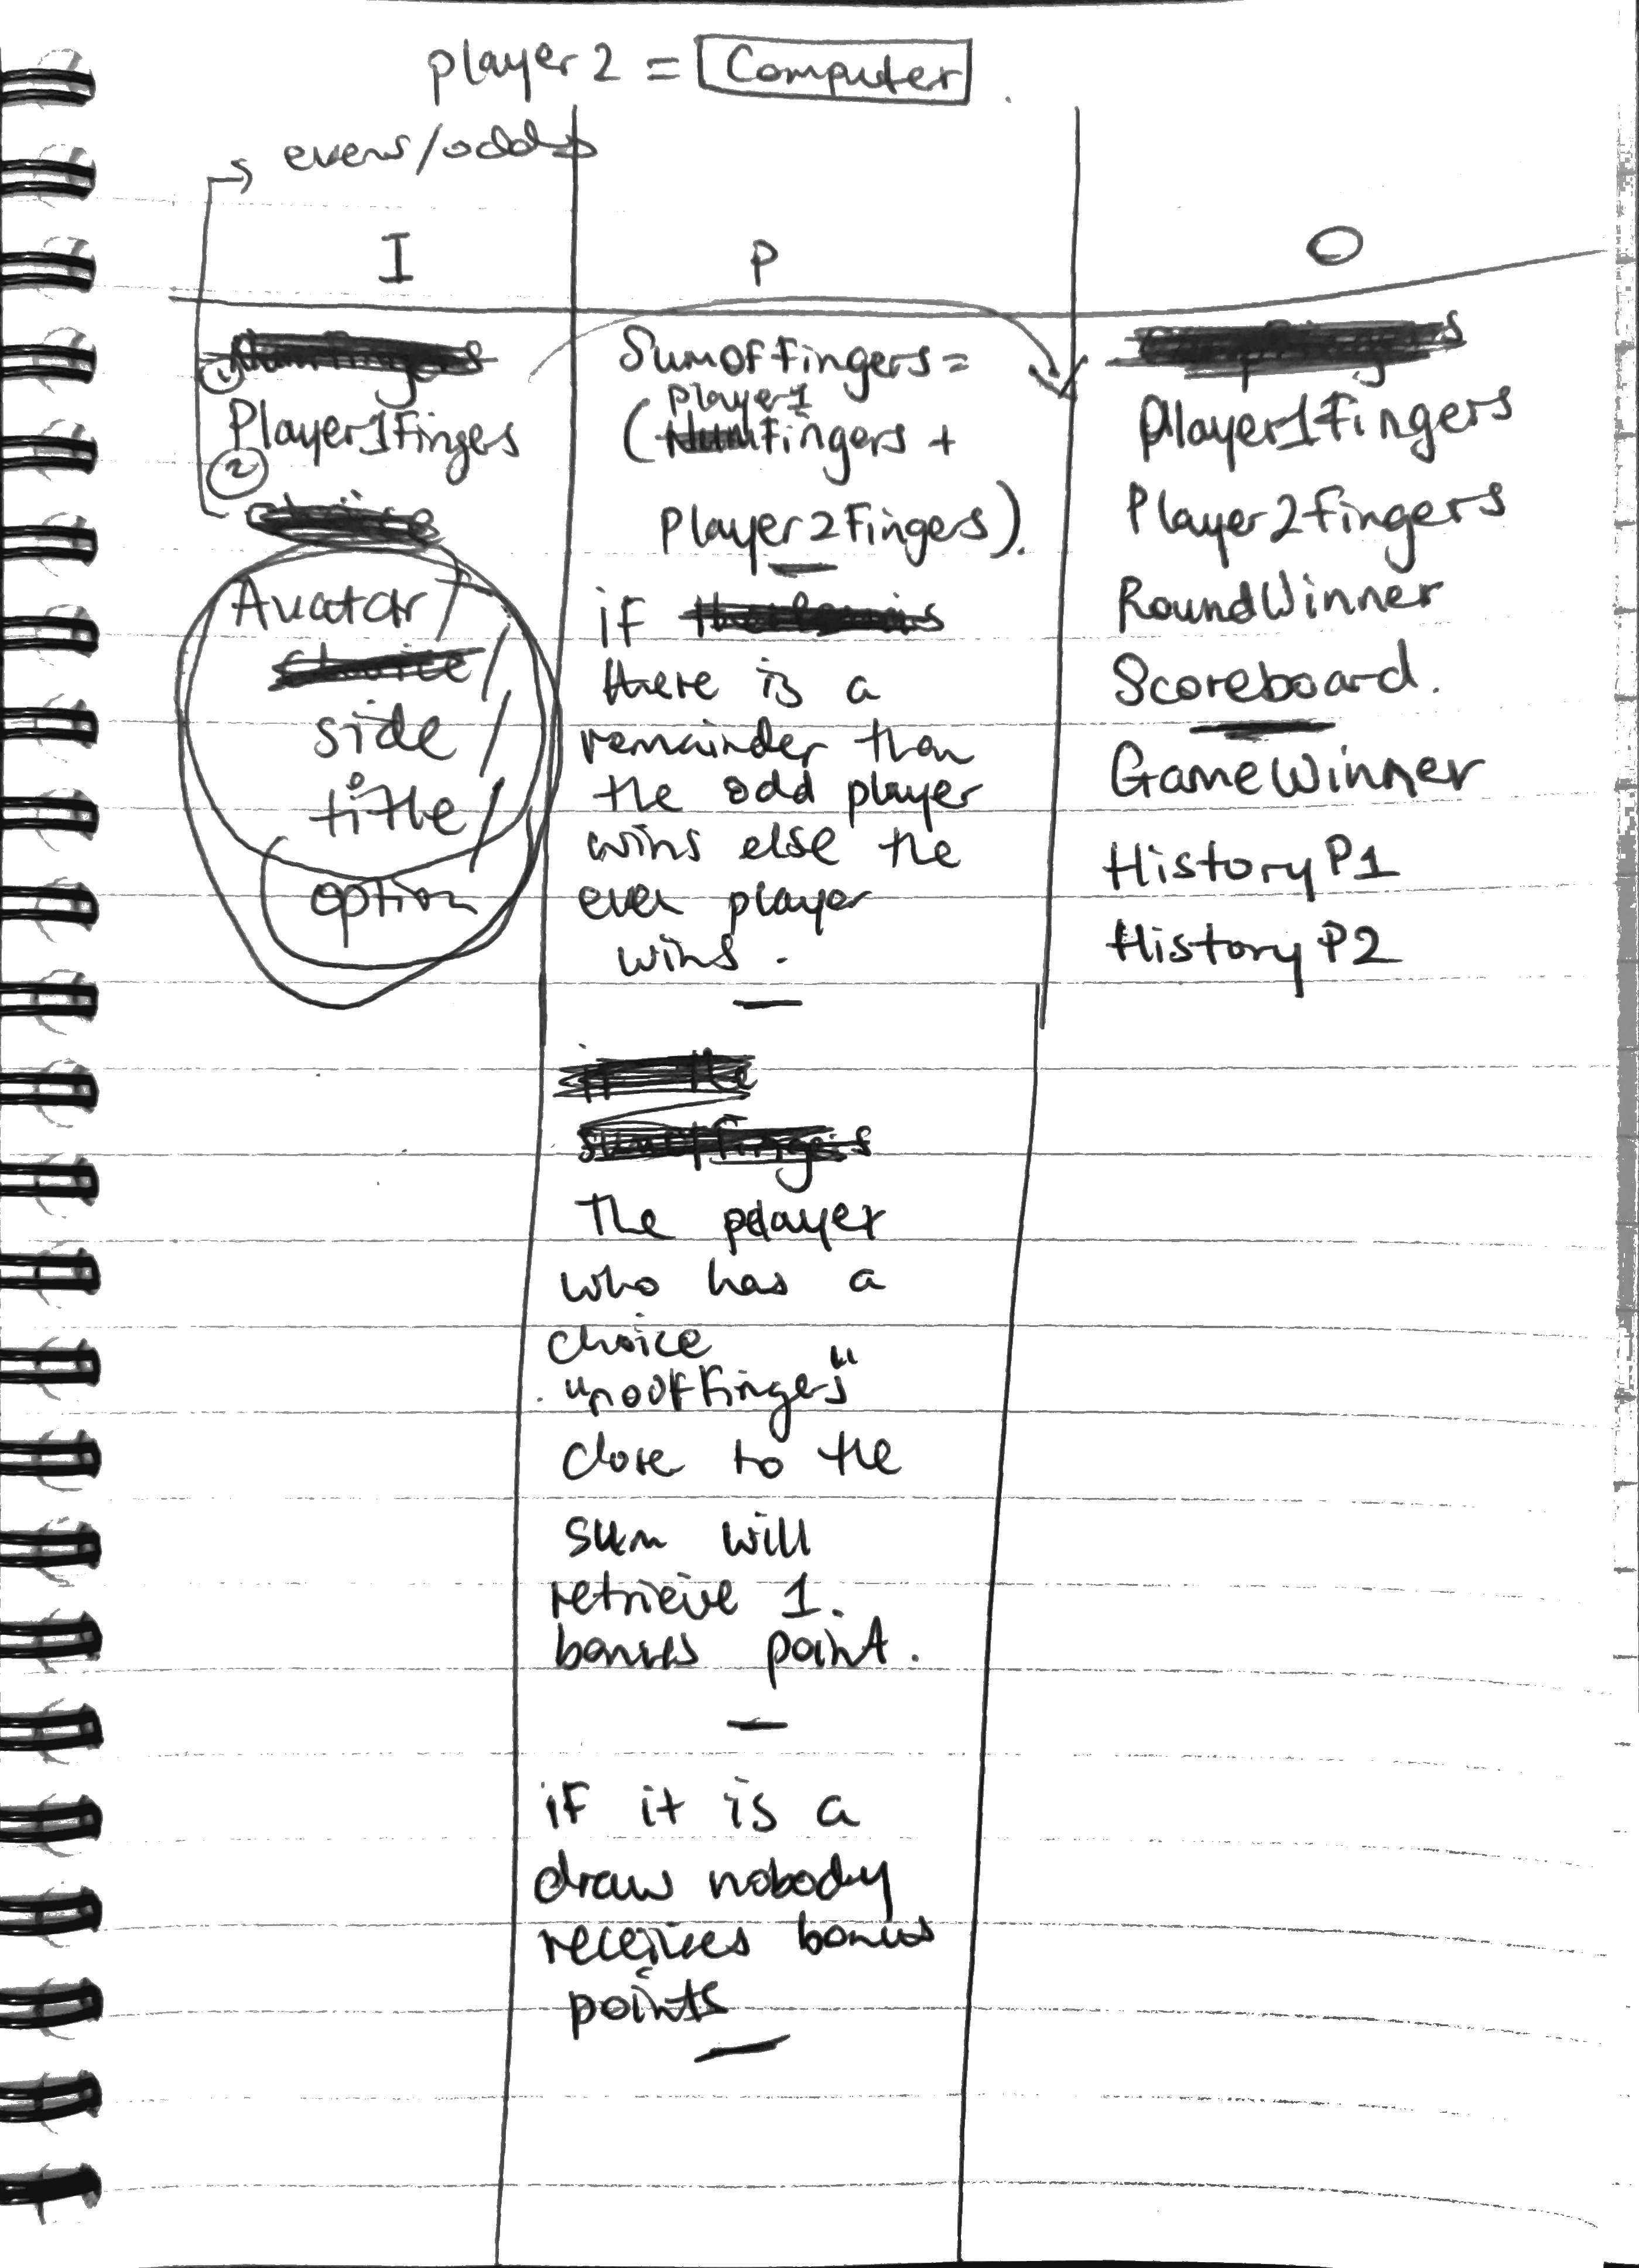 player 2 = Computer
evens/odds
I
P
O
①
Player1Finges
②
Avatar /
side /
title /
option
SumOfFingers =
player1
(Fingers +
Player2Fingers).
if
there is a
remainder than
the odd player
wins else the
even player
wins.
The player
who has a
choice
"noofFingers"
close to the
sum will
retrieve 1.
bonus point.
if it is a
draw nobody
receives bonus
points
Player1Fingers
Player2Fingers
RoundWinner
Scoreboard.
GameWinner
HistoryP1
HistoryP2